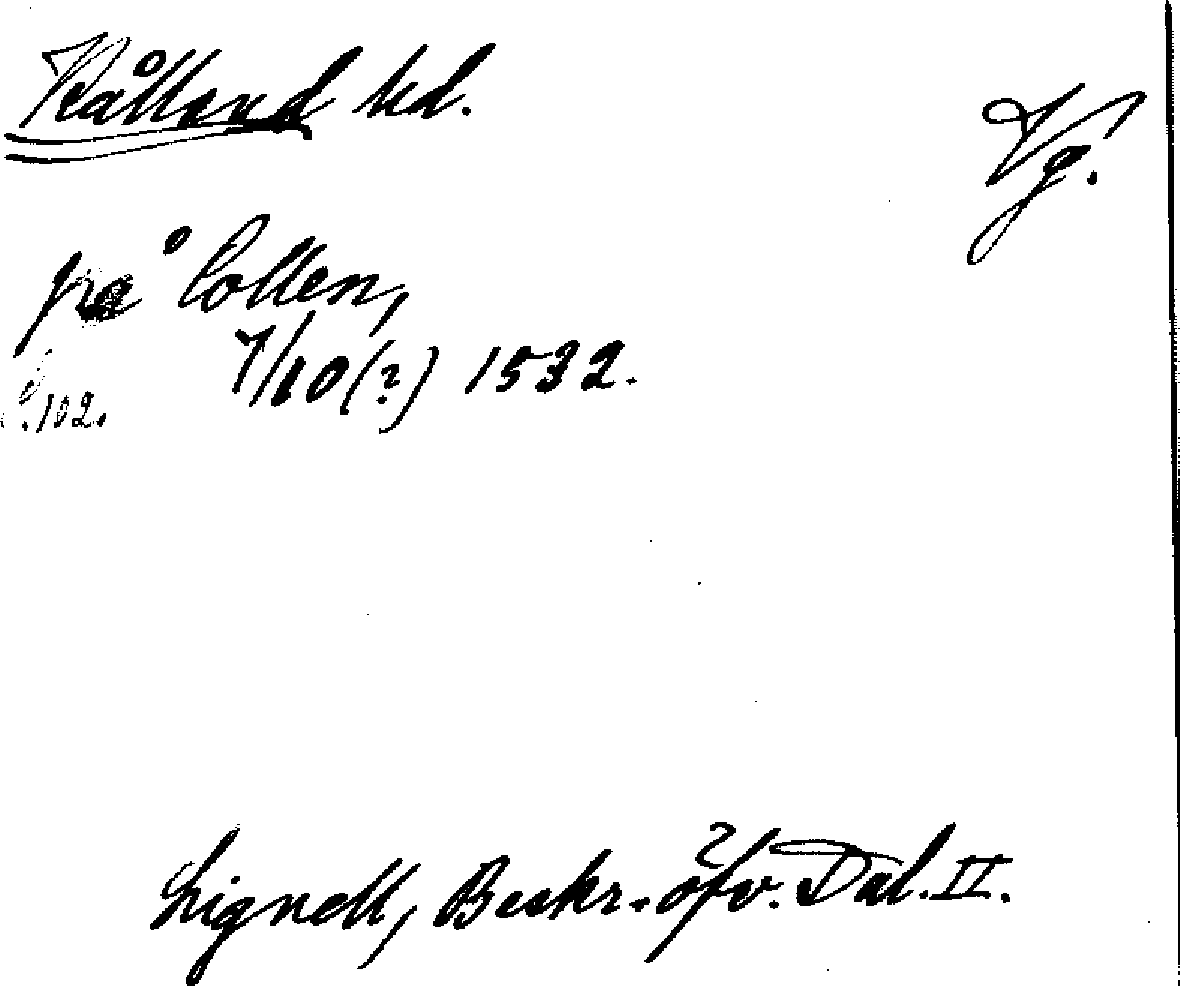 Kålland hd.
Vg.
på Collen,
7/10(?) 1532.
S. 102.
Lignell, Beskr. öfv. Dal. II.